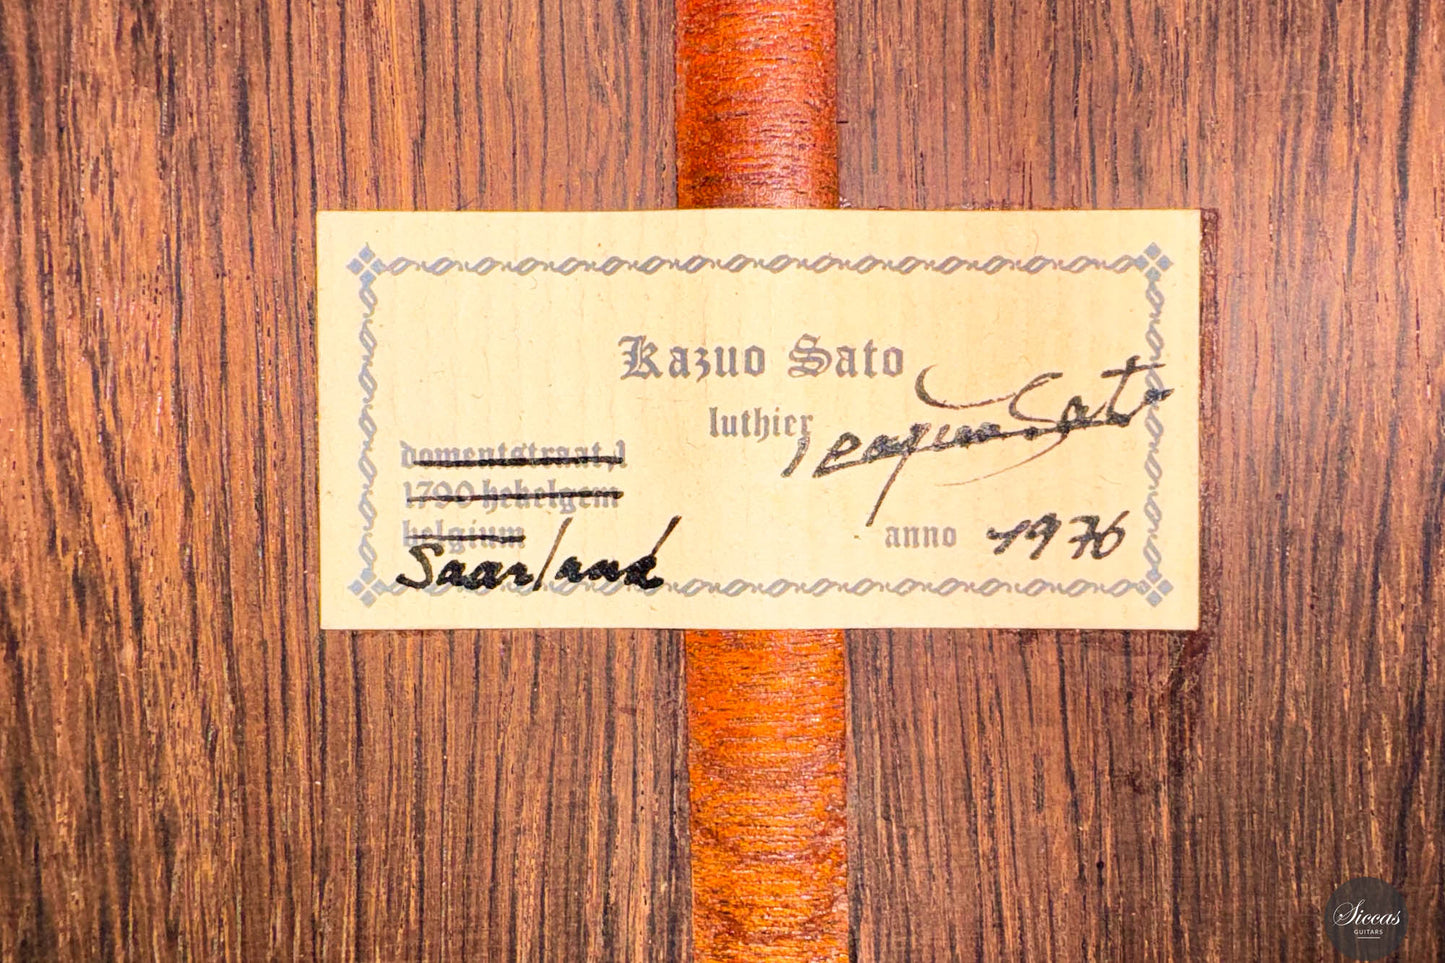 Kazuo Sato
luthier
domentstraat,1
1790 hekelgem
belgium
Saarland
anno 1976
Siccas
GUITARS